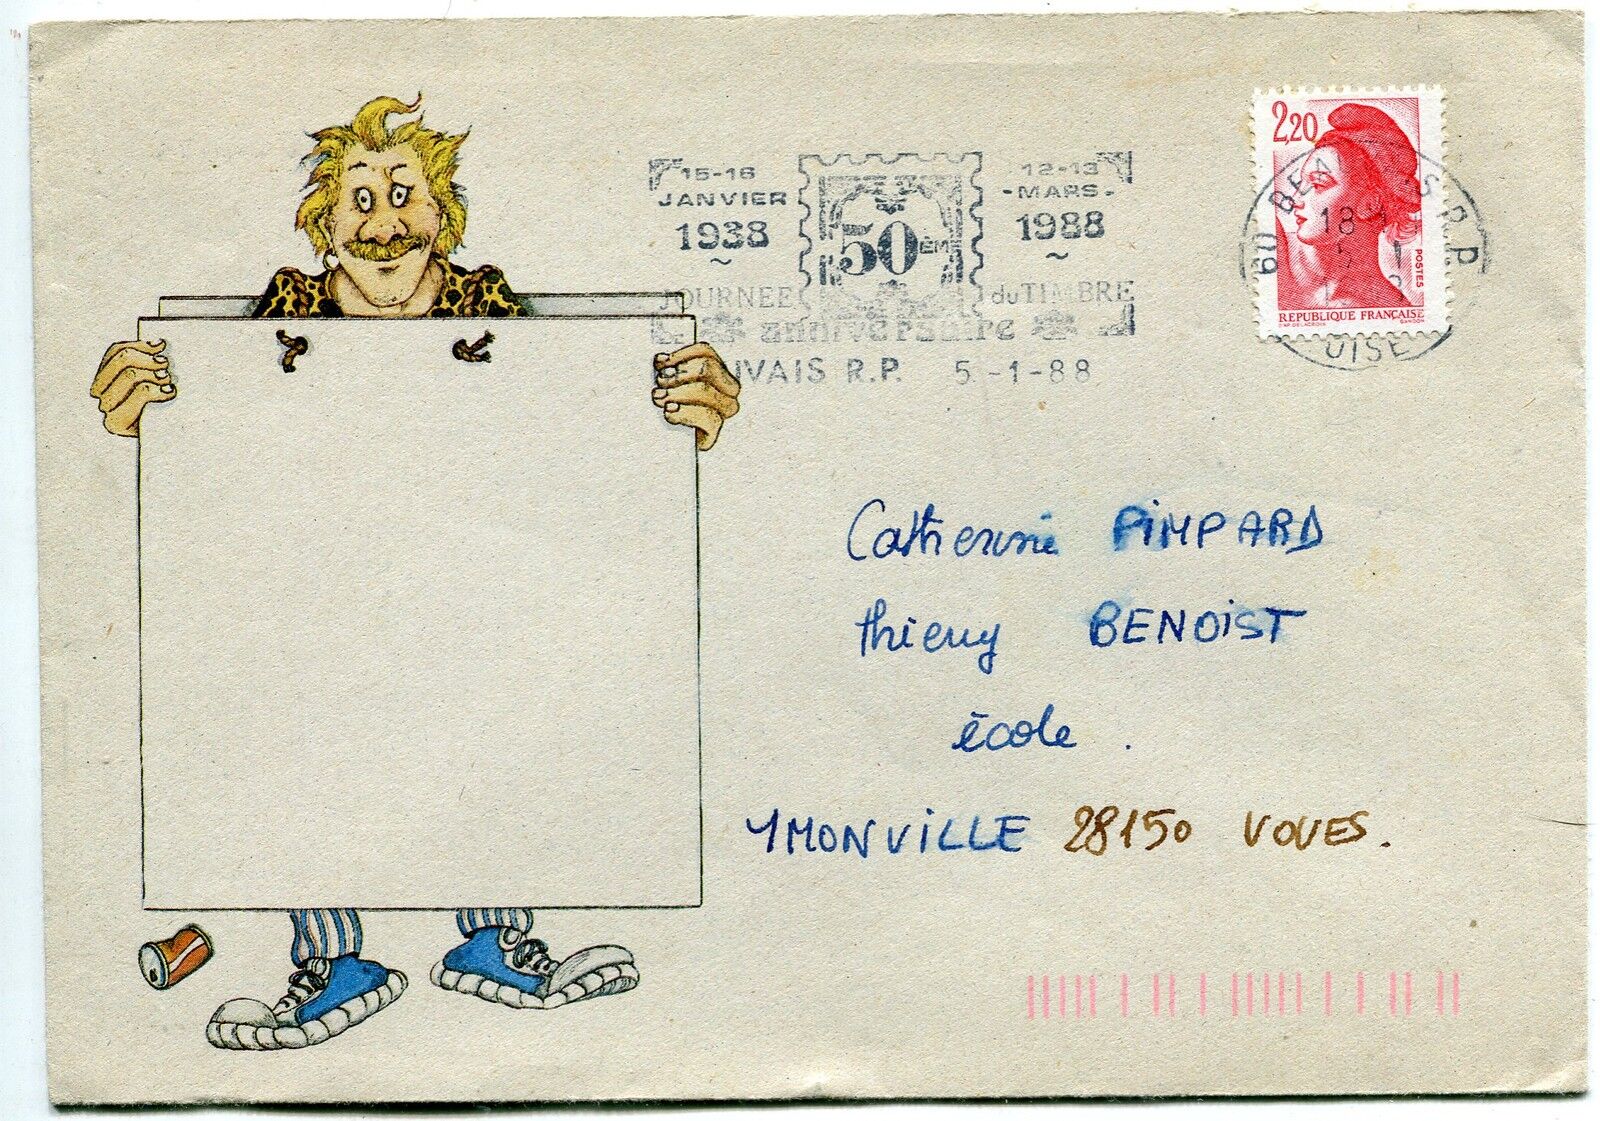 15-16 12-13
JANVIER -MARS-
1938 50ÈME 1988
~ ~
JOURNEE du TIMBRE
anniversaire
BEAUVAIS R.P. 5-1-88
2,20
POSTES
REPUBLIQUE FRANÇAISE
D'AP. DELACROIX GANDON
60 BEAUVAIS R.P.
18 H
5 1
OISE
Catherine PIMPARD
Thierry BENOIST
école.
YMONVILLE 28150 VOVES.